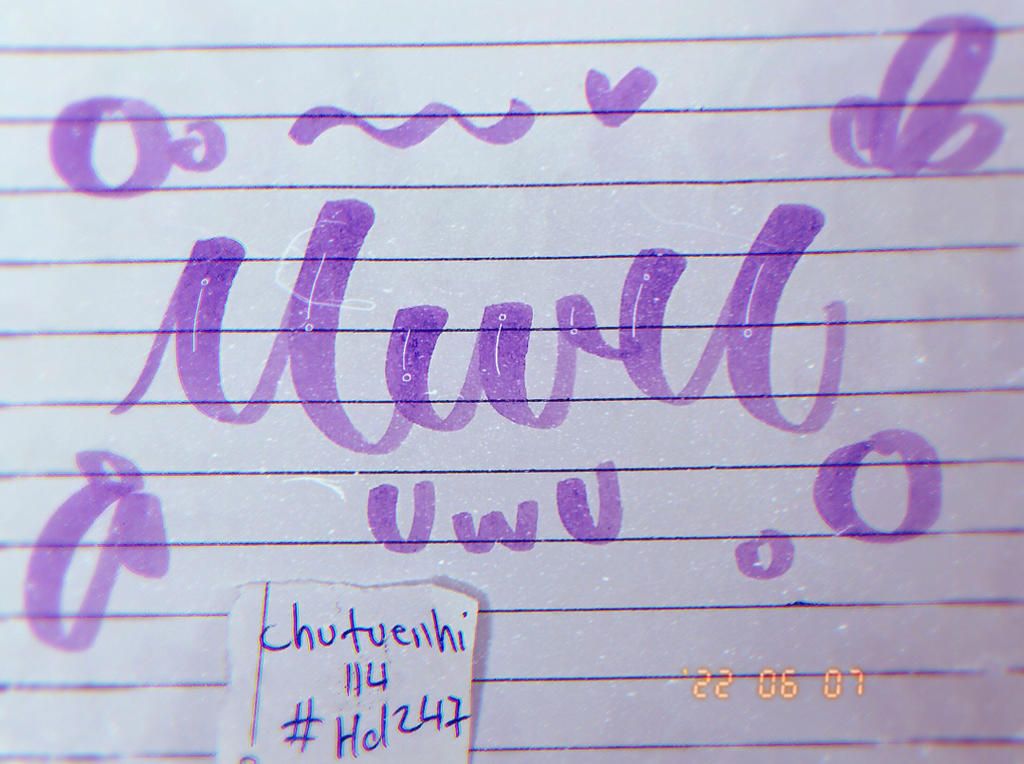 UwU
UwU
chutuenhi
114
#Hd247
'22 06 07